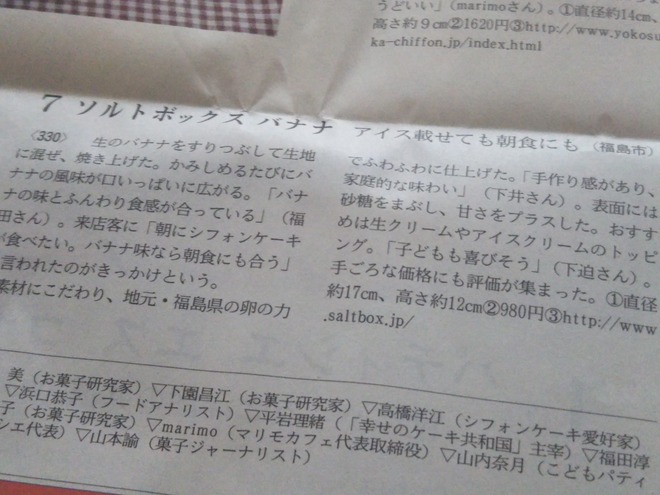 うどいい」(marimoさん)。①直径約14cm、
高さ約9cm②1620円③http://www.yokosu
ka-chiffon.jp/index.html
7 ソルトボックス バナナ アイス載せても朝食にも (福島市)
〈330〉 生のバナナをすりつぶして生地
に混ぜ、焼き上げた。かみしめるたびにバ
ナナの風味が口いっぱいに広がる。「バナ
ナの味とふんわり食感が合っている」(福
田さん)。来店客に「朝にシフォンケーキ
が食べたい。バナナ味なら朝食にも合う」
言われたのがきっかけという。
素材にこだわり、地元・福島県の卵の力
でふわふわに仕上げた。「手作り感があり、
家庭的な味わい」(下井さん)。表面には
砂糖をまぶし、甘さをプラスした。おすす
めは生クリームやアイスクリームのトッピ
ング。「子どもも喜びそう」(下迫さん)。
手ごろな価格にも評価が集まった。①直径
約17cm、高さ約12cm②980円③http://www
.saltbox.jp/
美(お菓子研究家)▽下園昌江(お菓子研究家)▽高橋洋江(シフォンケーキ愛好家)
▽浜口恭子(フードアナリスト)▽平岩理緒(「幸せのケーキ共和国」主宰)▽福田淳
子(お菓子研究家)▽marimo(マリモカフェ代表取締役)▽山内奈月(こどもパティ
シエ代表)▽山本諭(菓子ジャーナリスト)